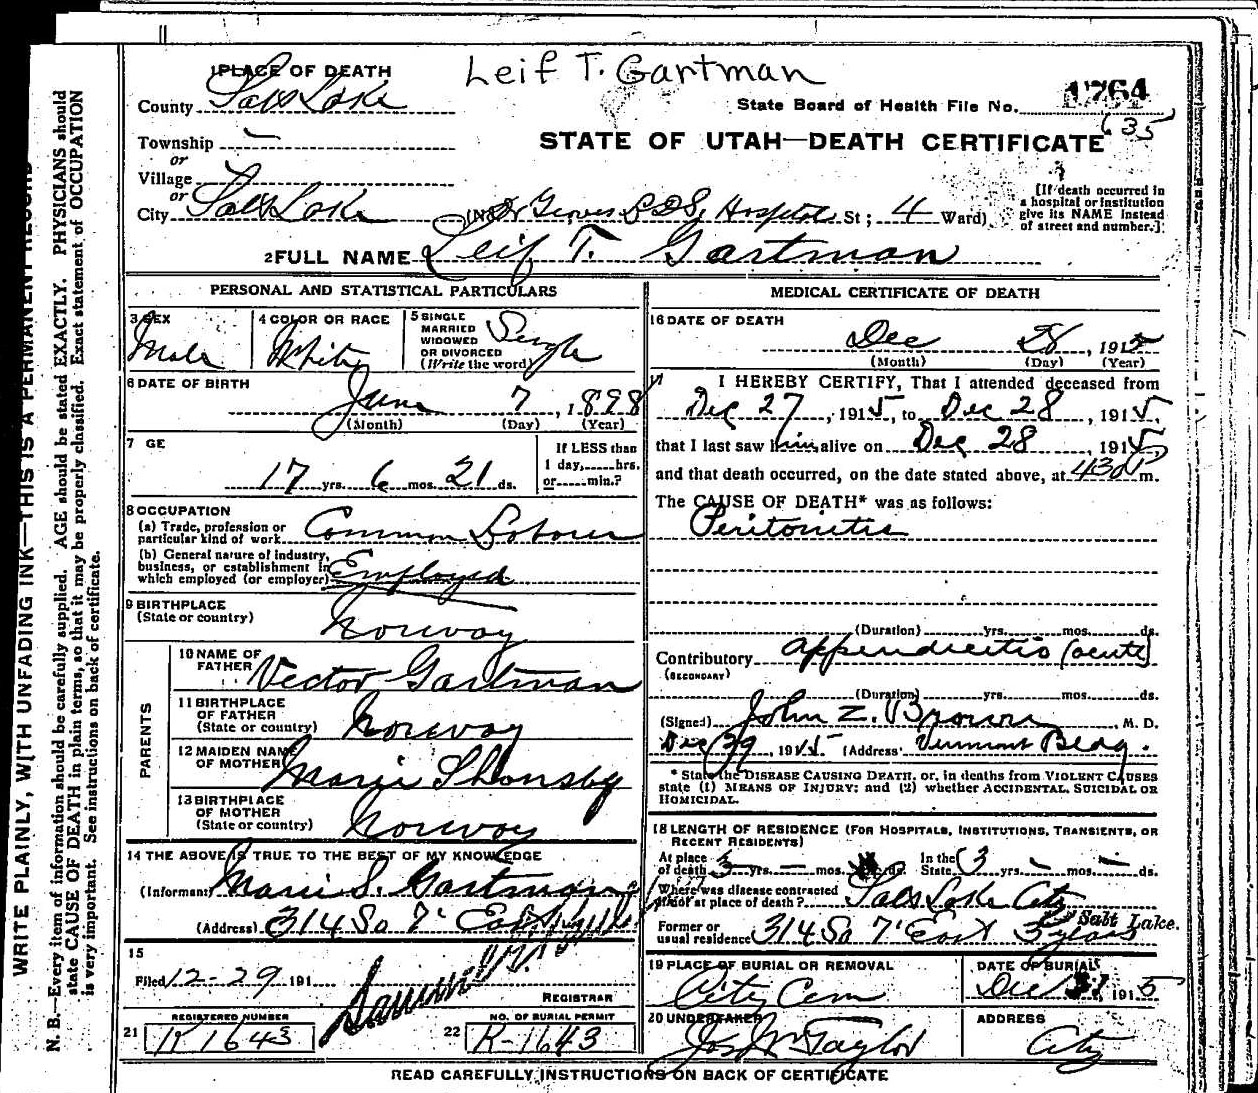 Leif T. Gartman
1 PLACE OF DEATH
County Salt Lake
State Board of Health File No. 1764
635
STATE OF UTAH—DEATH CERTIFICATE
Township —
or
Village
or
City Salt Lake (No. Dr Groves L D S, Hospital St; 4 Ward)
[If death occurred in a hospital or institution give its NAME instead of street and number.]
2 FULL NAME Leif T. Gartman
PERSONAL AND STATISTICAL PARTICULARS
3 SEX Male
4 COLOR OR RACE White
5 SINGLE MARRIED WIDOWED OR DIVORCED (Write the word) Single
6 DATE OF BIRTH
June 7, 1898
(Month) (Day) (Year)
7 GE
17 yrs. 6 mos. 21 ds.
If LESS than 1 day, hrs. or min.?
8 OCCUPATION
(a) Trade, profession or particular kind of work Common Laborer
(b) General nature of industry, business, or establishment in which employed (or employer) Employed
9 BIRTHPLACE (State or country) Norway
PARENTS
10 NAME OF FATHER Vector Gartman
11 BIRTHPLACE OF FATHER (State or country) Norway
12 MAIDEN NAME OF MOTHER Marie Shonsby
13 BIRTHPLACE OF MOTHER (State or country) Norway
14 THE ABOVE IS TRUE TO THE BEST OF MY KNOWLEDGE
(Informant) Marie S. Gartman
(Address) 314 So 7' East
15
Filed 12-29 191
REGISTRAR
21 REGISTERED NUMBER R 1643
22 NO. OF BURIAL PERMIT R-1643
MEDICAL CERTIFICATE OF DEATH
16 DATE OF DEATH
Dec 28, 1915
(Month) (Day) (Year)
I HEREBY CERTIFY, That I attended deceased from
Dec 27, 1915, to Dec 28, 1915,
that I last saw him alive on Dec 28, 1915
and that death occurred, on the date stated above, at 430 P m.
The CAUSE OF DEATH* was as follows:
Peritonitis
(Duration) yrs. mos. ds.
Contributory Appendicitis (acute)
(SECONDARY)
(Duration) yrs. mos. ds.
(Signed) John Z. Brown, M. D.
Dec 29, 1915 (Address) Vermont Bldg.
* State the DISEASE CAUSING DEATH, or, in deaths from VIOLENT CAUSES state (1) MEANS OF INJURY; and (2) whether ACCIDENTAL, SUICIDAL OR HOMICIDAL.
18 LENGTH OF RESIDENCE (FOR HOSPITALS, INSTITUTIONS, TRANSIENTS, OR RECENT RESIDENTS)
At place of death 3 yrs. — mos. ds. In the State 3 yrs. — mos. — ds.
Where was disease contracted if not at place of death? Salt Lake City
Former or usual residence 314 So 7' East 3 years Salt Lake.
19 PLACE OF BURIAL OR REMOVAL City Cem
DATE OF BURIAL Dec 31 1915
20 UNDERTAKER Jos Wm Taylor
ADDRESS City
READ CAREFULLY INSTRUCTIONS ON BACK OF CERTIFICATE
WRITE PLAINLY, WITH UNFADING INK—THIS IS A PERMANENT RECORD
N. B.—Every item of information should be carefully supplied. AGE should be stated EXACTLY. PHYSICIANS should
state CAUSE OF DEATH in plain terms, so that it may be properly classified. Exact statement of OCCUPATION
is very important. See instructions on back of certificate.